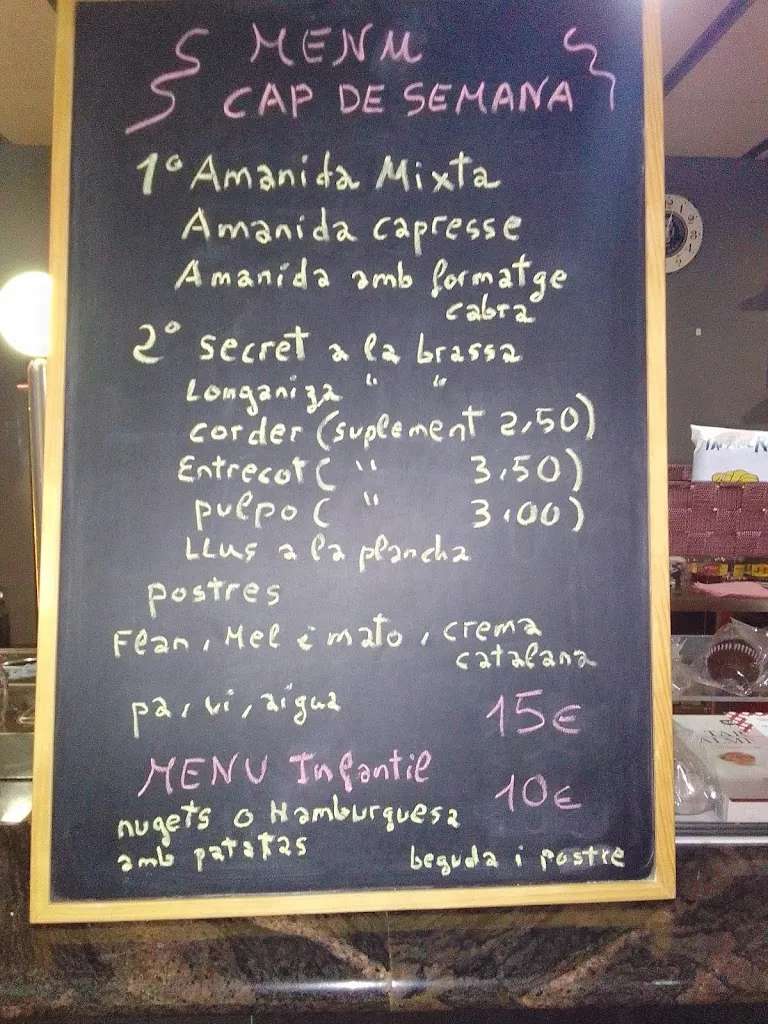 MENU
CAP DE SEMANA
1º Amanida Mixta
Amanida capresse
Amanida amb formatge
cabra
2º secret a la brassa
Longaniza " "
corder (suplement 2,50)
Entrecot ( " 3,50)
pulpo ( " 3,00)
LLus a la plancha
postres
Flan, Mel i mato, crema
catalana
pa, vi, aigua 15€
MENU Infantil
10€
nugets o Hamburguesa
amb patatas beguda i postre